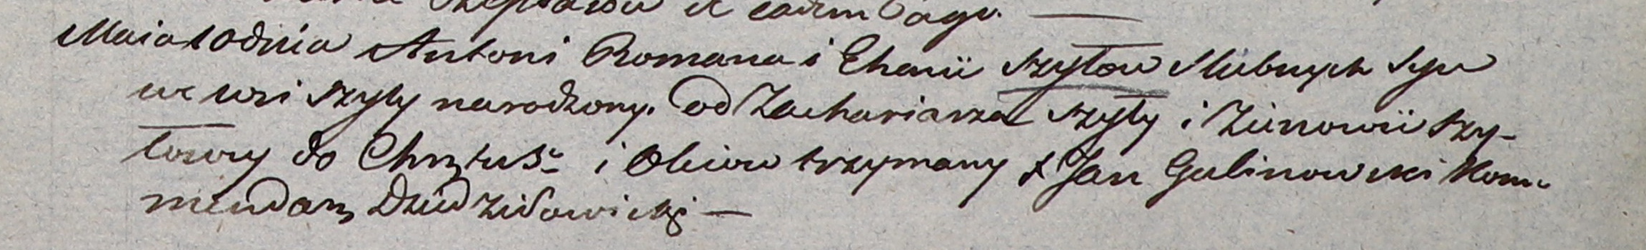 Maia 10 dnia Antoni Romana i Chenii Szytow Slubnych Syn
we wsi Szyly narodzony. od Zachariasza Szyły i Zienowii Szy-
łowy do Chrztu S. i Oleiow trzymany x Jan Gulinowski Kom-
mendarz Dziedziłowicki —